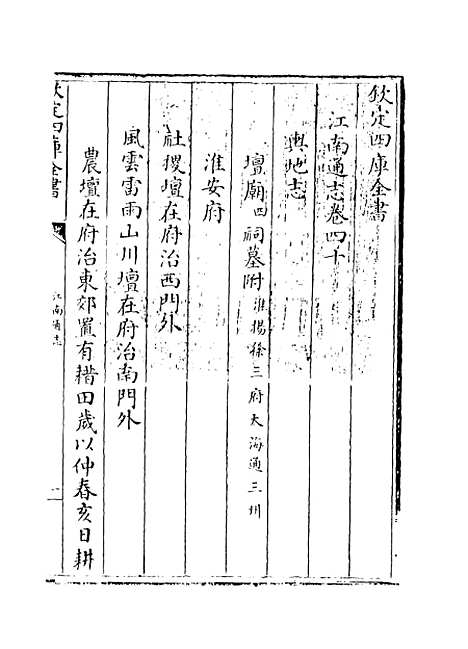 欽定四庫全書
江南通志卷四十
輿地志
壇廟四祠墓附淮揚徐三府大海通三州
淮安府
社稷壇在府治西門外
風雲雷雨山川壇在府治南門外
農壇在府治東郊置有耤田歲以仲春亥日耕
欽定四庫全書
江南通志